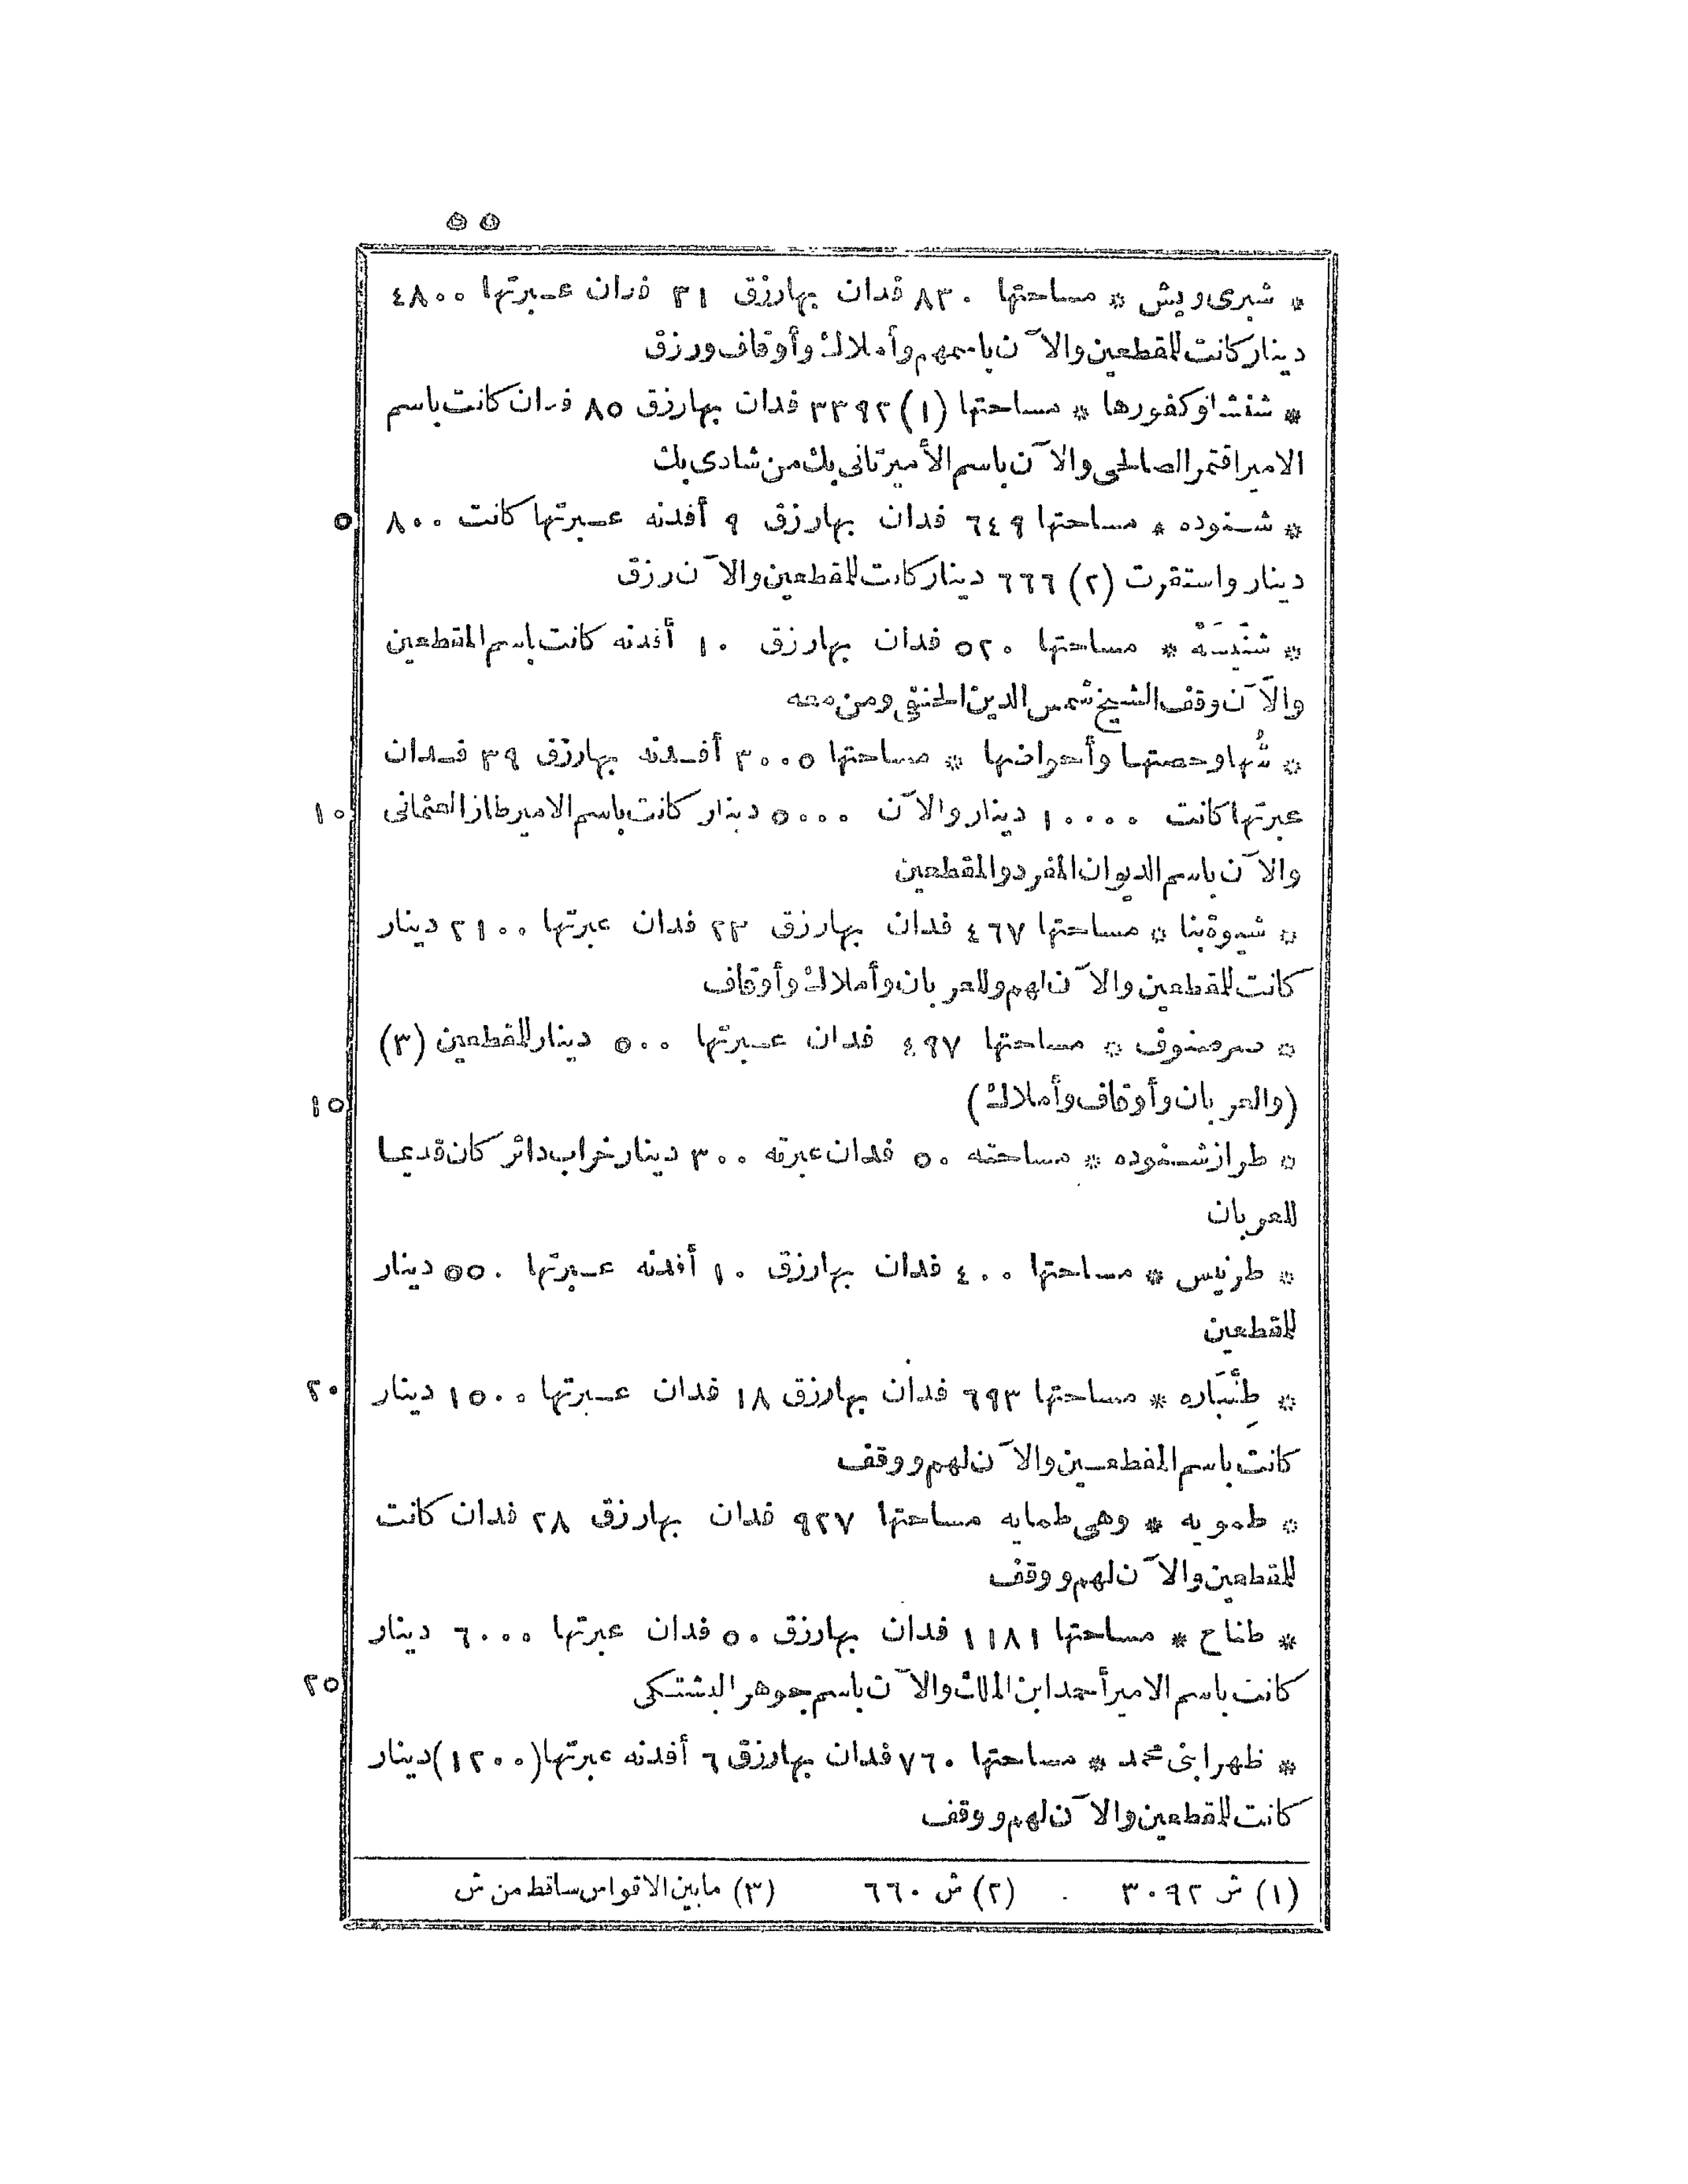 ٥٥
* شبرى ويش * مساحتها ٨٣٠ فدان بها رزق ٣١ فدان عبرتها ٤٨٠٠
دينار كانت للمقطعين والآن باسمهم وأملاك وأوقاف ورزق
* شنشا وكفورها * مساحتها (١) ٣٣٩٢ فدان بها رزق ٨٥ فدان كانت باسم
الامير اقتمر الصالحى والآن باسم الأمير تانى بك من شادى بك
٥ * شنوده * مساحتها ٦٤٩ فدان بها رزق ٩ أفدنه عبرتها كانت ٨٠٠
دينار واستقرت (٢) ٦٦٦ دينار كانت للمقطعين والآن رزق
* شنيسة * مساحتها ٥٢٠ فدان بها رزق ١٠ أفدنه كانت باسم المقطعين
والآن وقف الشيخ شمس الدين الحنفى ومن معه
* وحصتها وأحواضها * مساحتها ٣٠٠٥ أفدنه بها رزق ٣٩ فدان
١٠ عبرتها كانت ١٠٠٠٠ دينار والآن ٥٠٠٠ دينار كانت باسم الامير طاز العثمانى
والآن باسم الديوان المفرد والمقطعين
* شيوة بنا * مساحتها ٤٦٧ فدان بها رزق ٢٣ فدان عبرتها ٢١٠٠ دينار
كانت للمقطعين والآن لهم وللعربان وأملاك وأوقاف
* صرصنوف * مساحتها ٤٩٧ فدان عبرتها ٥٠٠ دينار للمقطعين (٣)
١٥ (والعربان وأوقاف وأملاك)
* طراز شنوده * مساحته ٥٠ فدان عبرته ٣٠٠ دينار خراب داثر كان قديما
للعربان
* طرنيس * مساحتها ٤٠٠ فدان بها رزق ١٠ أفدنه عبرتها ٥٥٠ دينار
للمقطعين
٢٠ * طِنَّبَاره * مساحتها ٦٩٣ فدان بها رزق ١٨ فدان عبرتها ١٥٠٠ دينار
كانت باسم المقطعين والآن لهم ووقف
* طمويه * وهى طمايه مساحتها ٩٢٧ فدان بها رزق ٢٨ فدان كانت
للمقطعين والآن لهم ووقف
* طناح * مساحتها ١١٨١ فدان بها رزق ٥٠ فدان عبرتها ٦٠٠٠ دينار
٢٥ كانت باسم الامير أحمد ابن الملك والآن باسم جوهر البشتكى
* ظهرا بنى محمد * مساحتها ٧٦٠ فدان بها رزق ٦ أفدنه عبرتها (١٢٠٠) دينار
كانت للمقطعين والآن لهم ووقف
(١) ش ٣٠٩٢ (٢) ش ٦٦٠ (٣) ما بين الاقواس ساقط من ش